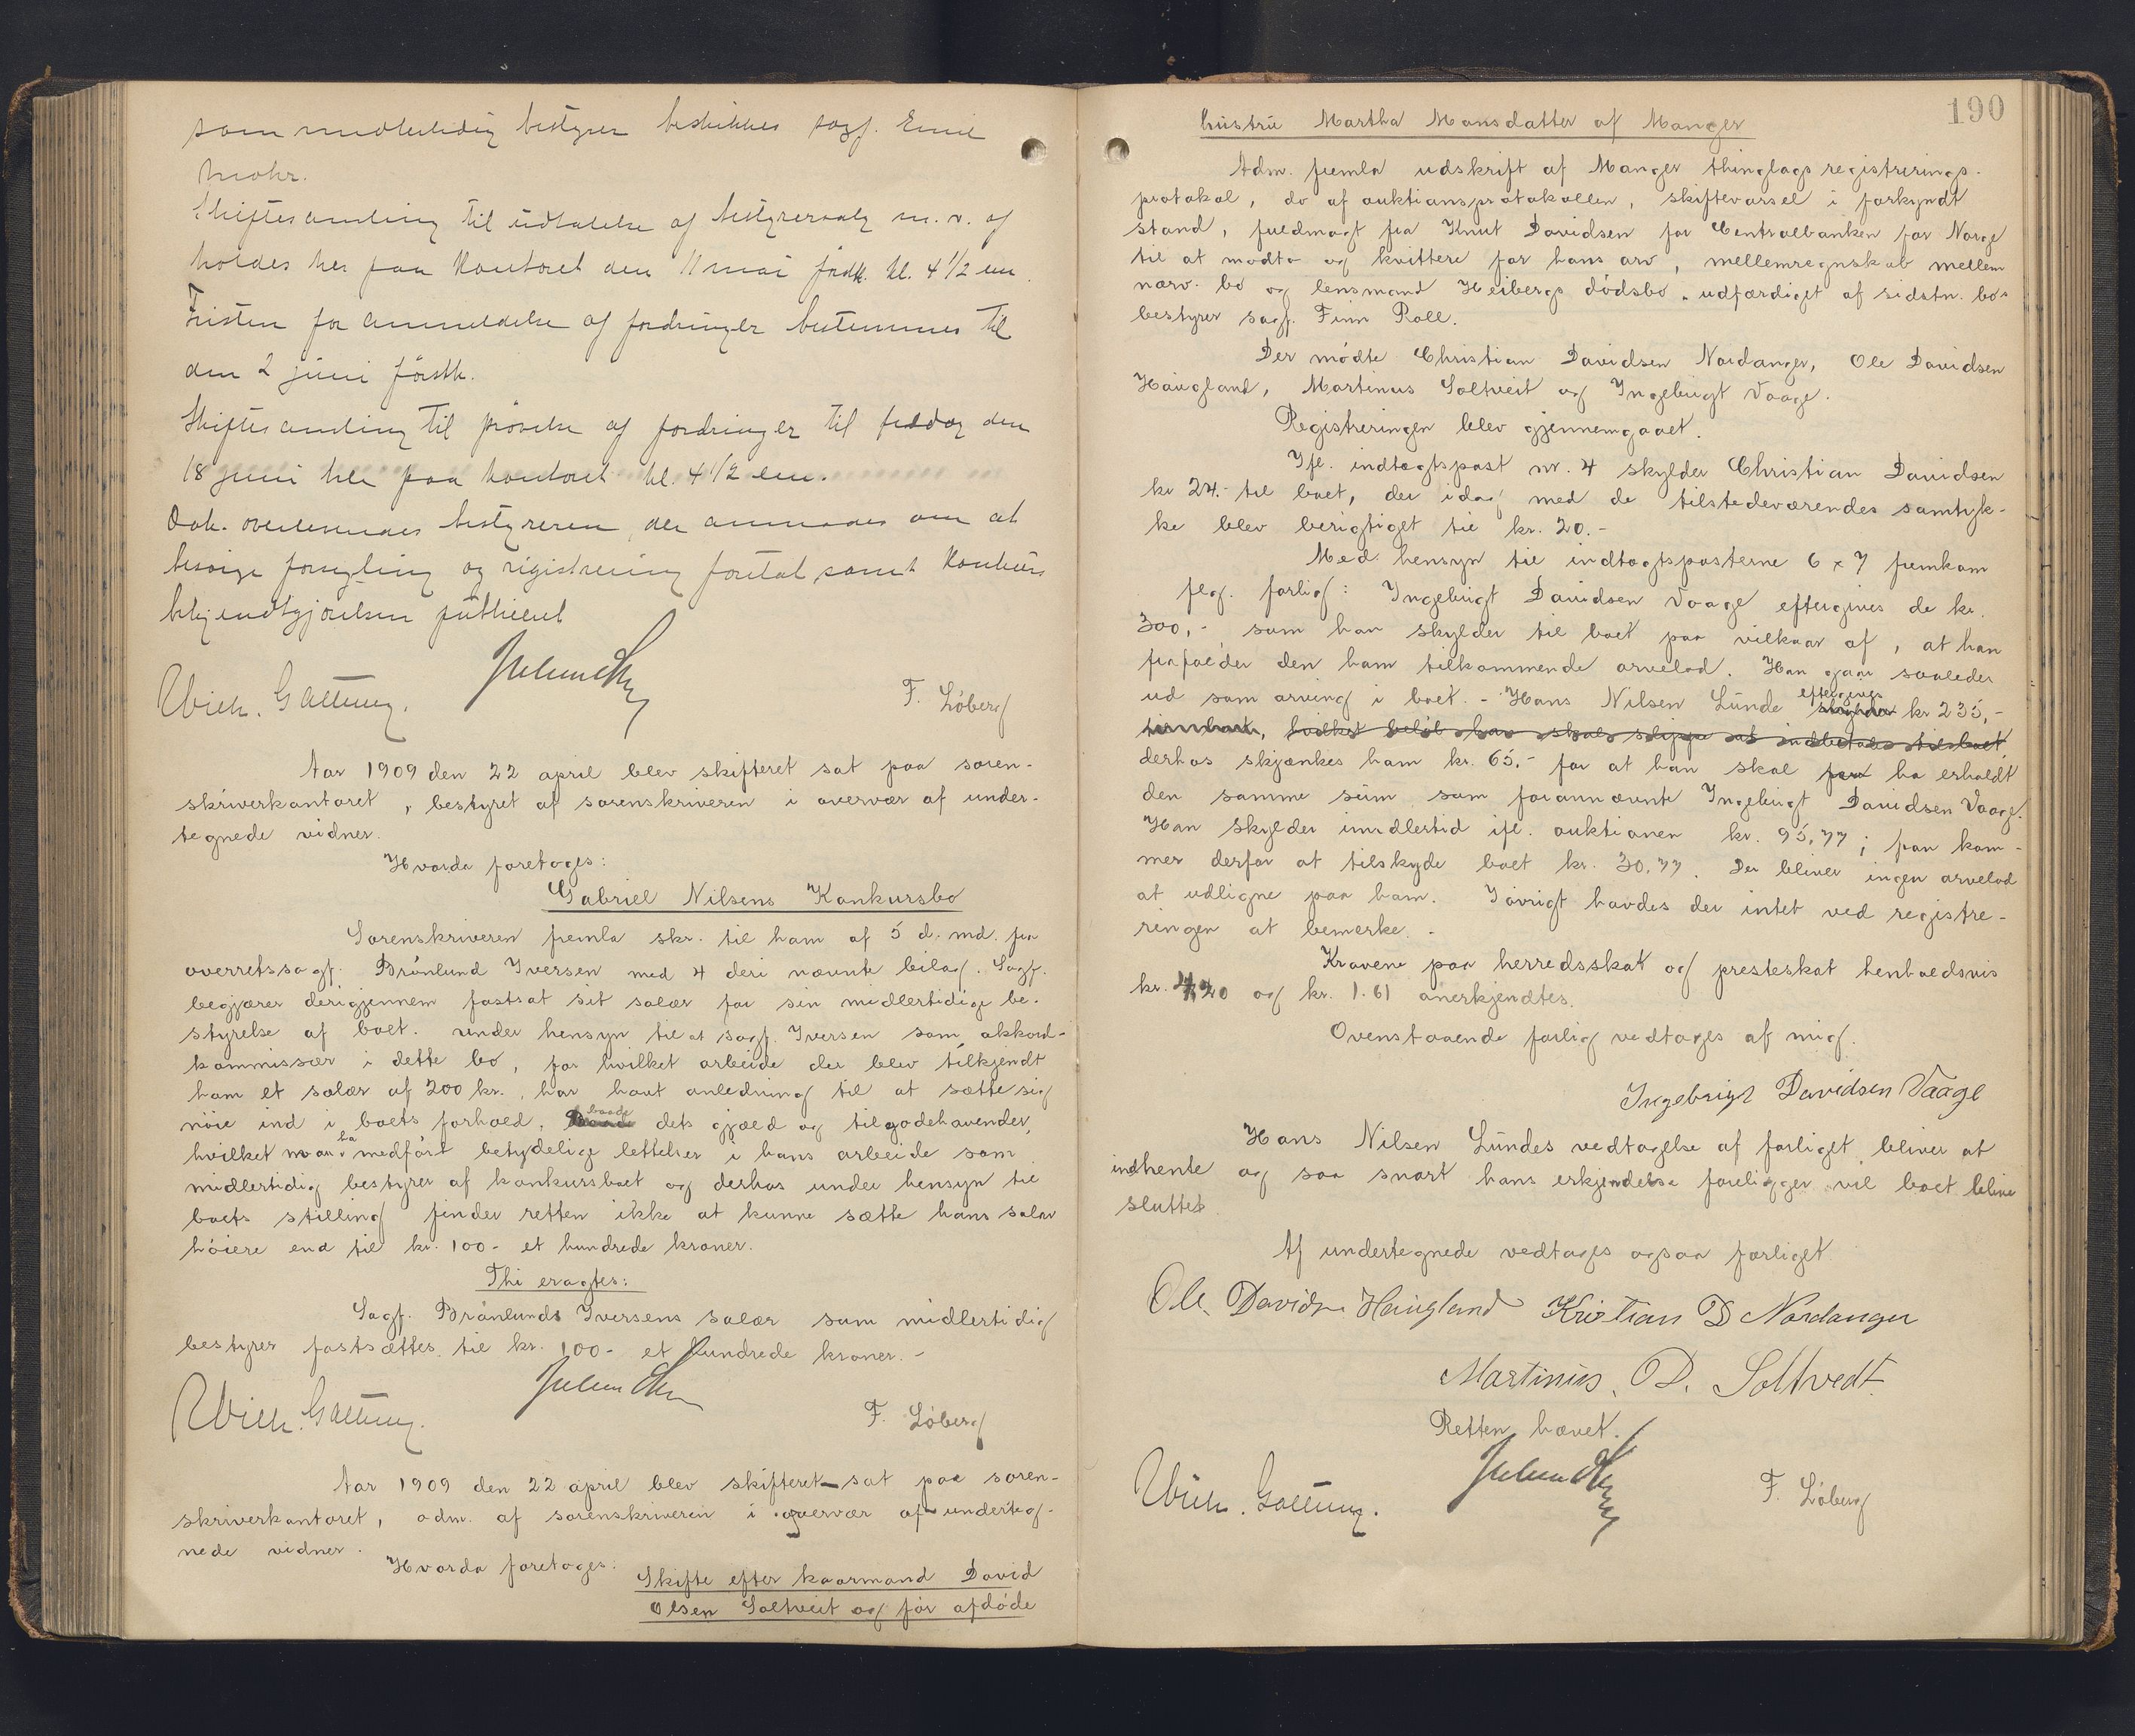 som midlertidig bestyrer beskikkes sagf. Emil
Mohr.
Skiftesamling til udtalelse af bestyrervalg m. v. af
holdes her paa kontoret den 11 mai førstk. kl. 4 1/2 em.
Fristen for anmeldelse af fordringer bestemmes til
den 2 juni førstk.
Skiftesamling til prøvelse af fordringer til fredag den
18 juni her paa kontoret kl. 4 1/2 em.
Dok. oversendes bestyreren, der anmodes om at
besørge forsegling og registrering foretat samt konkurs
bekjendtgjørelsen publiceret
F. Løberg
Aar 1909 den 22 april blev skifteret sat paa soren-
skriverkontoret, bestyret af sorenskriveren i overvær af under-
tegnede vidner.
Hvorda foretoges:
Gabriel Nilsens Konkursbo
Sorenskriveren fremla skr. til ham af 5 d. md. fra
overretssagf. Brönlund Iversen med 4 deri nævnte bilag. Sagf.
begjærer derigjennem fastsat sit salær for sin midlertidige be-
styrelse af boet. Under hensyn til at sagf. Iversen som akkord-
kommissær i dette bo, for hvilket arbeide der blev tilkjendt
ham et salær af 200 kr., har havt anledning til at sætte sig
nöie ind i boets forhold, baade dets gjæld og tilgodehavender,
hvilket maa ha medført betydelige lettelser i hans arbeide som
midlertidig bestyrer af konkursboet og derhos under hensyn til
boets stilling finder retten ikke at kunne sætte hans salær
höiere end til kr. 100- et hundrede kroner.
Thi eragtes:
Sagf. Brönlunds Iversens salær som midlertidig
bestyrer fastsættes til kr. 100- et hundrede kroner. -
F. Löberg
Aar 1909 den 22 april blev skifteret sat paa soren-
skriverkontoret, adm. af sorenskriveren i overvær af underteg-
nede vidner.
Hvorda foretoges:
Skifte efter kaarmand David
Olsen Soltveit og før afdöde
190
hustru Martha Monsdatter af Manger
Adm. fremla udskrift af Manger thinglags registrerings-
protokol, do af auktionsprotokollen, skiftevarsel i forkyndt
stand, fuldmagt fra Knut Davidsen for Centralbanken for Norge
til at modta og kvittere for hans arv, mellemregnskab mellem
nærv. bo og lensmand Heibergs dödsbo, udfærdiget af sidstn. bos
bestyrer sagf. Finn Roll.
Der mödte Christian Davidsen Nordanger, Ole Davidsen
Haugland, Martinus Soltveit og Ingebrigt Vaage.
Registreringen blev gjennemgaaet.
Ifl. indtægtspost nr. 4 skylder Christian Davidsen
kr 24.- til boet, der idag med de tilstedeværendes samtyk-
ke blev berigtiget til kr. 20.-
Med hensyn til indtægtsposterne 6 x 7 fremkom
flg. forlig: Ingebrigt Davidsen Vaage eftergives de kr.
300,- som han skylder til boet paa vilkaar af, at han
frafalder den ham tilkommende arvelod. Han gaar saaledes
ud som arving i boet. - Hans Nilsen Lunde eftergives kr 235,-
hvilket beløb han skal slippe at indbetale til boet,
derhos skjænkes ham kr. 65.- for at han skal ha erholdt
den samme sum som forannævnte Ingebrigt Davidsen Vaage.
Han skylder imidlertid ifl. auktionen kr. 95,77; han kom-
mer derfor at tilskyde boet kr. 30,77. Der bliver ingen arvelod
at udligne paa ham. Iövrigt havdes der intet ved registre-
ringen at bemerke. -
Kravene paa herredsskat og presteskat henholdsvis
kr. 4,20 og kr. 1.61 anerkjendtes.
Ovenstaaende forlig vedtages af mig.
Ingebrigt Davidsen Vaage
Hans Nilsen Lundes vedtagelse af forliget bliver at
indhente og saa snart hans erkjendelse foreligger vil boet blive
sluttet.
Af undertegnede vedtages ogsaa forliget.
Ole Davidsen Haugland Kristian D Nordanger
Martinus. D. Soltvedt.
Retten hævet.
F. Löberg